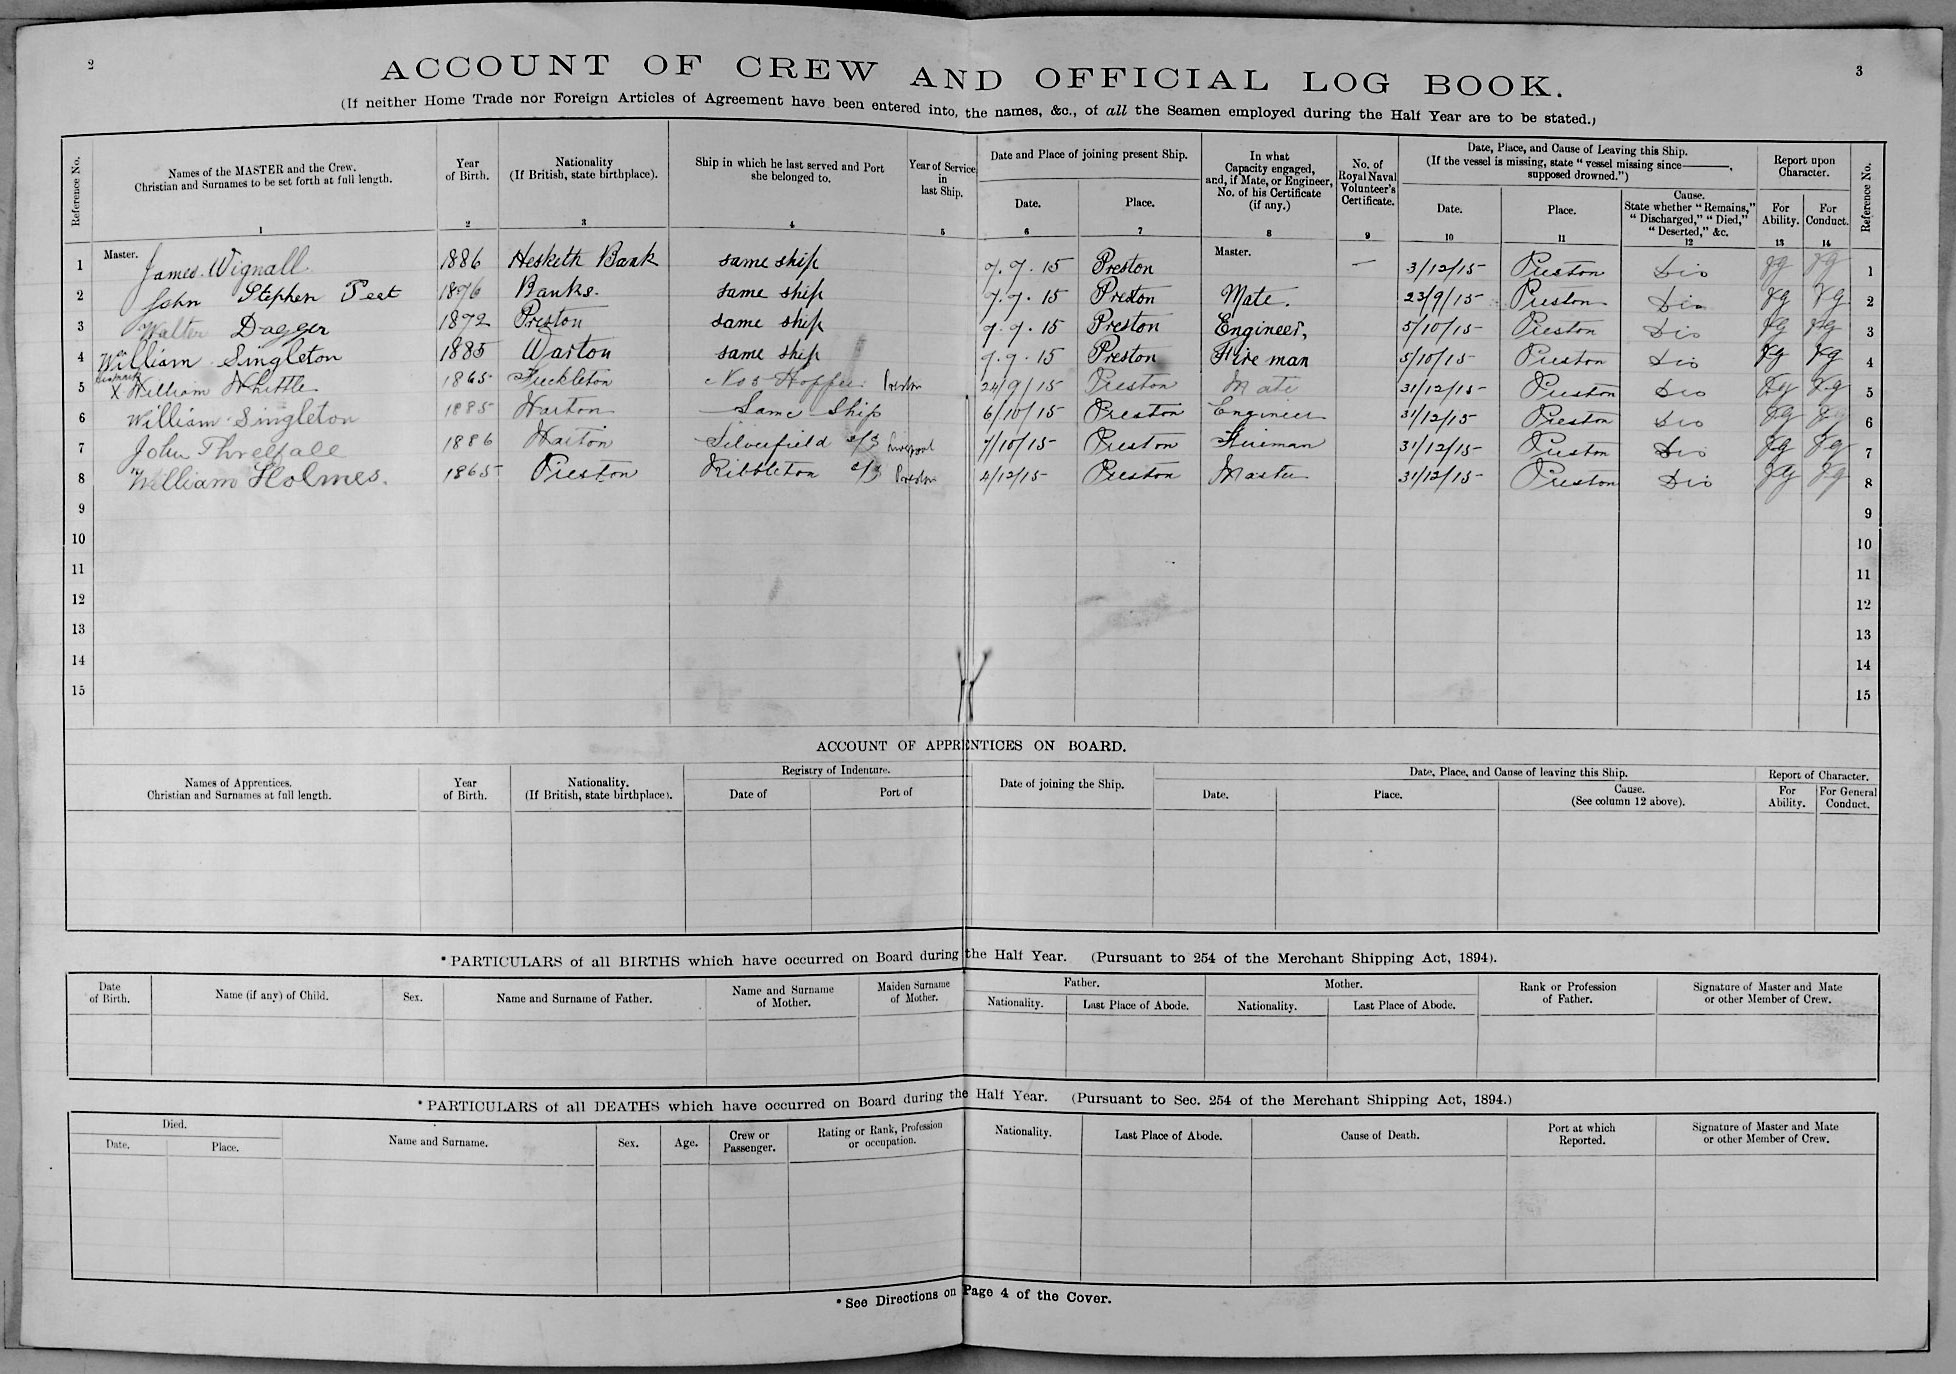 2
3
ACCOUNT OF CREW AND OFFICIAL LOG BOOK.
(If neither Home Trade nor Foreign Articles of Agreement have been entered into, the names, &c., of all the Seamen employed during the Half Year are to be stated.)
Reference No. Names of the MASTER and the Crew. Christian and Surnames to be set forth at full length. 1 Year of Birth. 2 Nationality (If British, state birthplace). 3 Ship in which he last served and Port she belonged to. 4 Year of Service in last Ship. 5 Date and Place of joining present Ship. Date. 6 Place. 7 In what Capacity engaged, and, if Mate, or Engineer, No. of his Certificate (if any.) 8 No. of Royal Naval Volunteer's Certificate. 9 Date, Place, and Cause of Leaving this Ship. (If the vessel is missing, state "vessel missing since———, supposed drowned.") Date. 10 Place. 11 Cause. State whether "Remains," "Discharged," "Died," "Deserted," &c. 12 Report upon Character. For Ability. 13 For Conduct. 14 Reference No.
1 Master. James Wignall 1886 Hesketh Bank same ship 7.7.15 Preston Master. — 3/12/15 Preston Dis Vg Vg 1
2 John Stephen Peet 1876 Banks. same ship 7.7.15 Preston Mate. 23/9/15 Preston Dis Vg Vg 2
3 Walter Dagger 1872 Preston same ship 7.7.15 Preston Engineer, 5/10/15 Preston Dis Vg Vg 3
4 William Singleton 1885 Warton same ship 7.7.15 Preston Fire man 5/10/15 Preston Dis Vg Vg 4
5 X William Whittle 1865 Freckleton No 5 Hopper Preston 24/9/15 Preston Mate 31/12/15 Preston Dis Vg Vg 5
6 William Singleton 1885 Warton Same Ship 6/10/15 Preston Engineer 31/12/15 Preston Dis Vg Vg 6
7 John Threlfall 1886 Warton Silverfield s/s Liverpool 7/10/15 Preston Fireman 31/12/15 Preston Dis Vg Vg 7
8 William Holmes. 1865 Preston Ribbleton s/s Preston 4/12/15 Preston Master 31/12/15 Preston Dis Vg Vg 8
9 9
10 10
11 11
12 12
13 13
14 14
15 15
ACCOUNT OF APPRENTICES ON BOARD.
Names of Apprentices. Christian and Surnames at full length. Year of Birth. Nationality. (If British, state birthplace). Registry of Indenture. Date of Port of Date of joining the Ship. Date, Place, and Cause of leaving this Ship. Date. Place. Cause. (See column 12 above). Report of Character. For Ability. For General Conduct.
*PARTICULARS of all BIRTHS which have occurred on Board during the Half Year. (Pursuant to 254 of the Merchant Shipping Act, 1894).
Date of Birth. Name (if any) of Child. Sex. Name and Surname of Father. Name and Surname of Mother. Maiden Surname of Mother. Father. Nationality. Last Place of Abode. Mother. Nationality. Last Place of Abode. Rank or Profession of Father. Signature of Master and Mate or other Member of Crew.
*PARTICULARS of all DEATHS which have occurred on Board during the Half Year. (Pursuant to Sec. 254 of the Merchant Shipping Act, 1894.)
Died. Date. Place. Name and Surname. Sex. Age. Crew or Passenger. Rating or Rank, Profession or occupation. Nationality. Last Place of Abode. Cause of Death. Port at which Reported. Signature of Master and Mate or other Member of Crew.
*See Directions on Page 4 of the Cover.